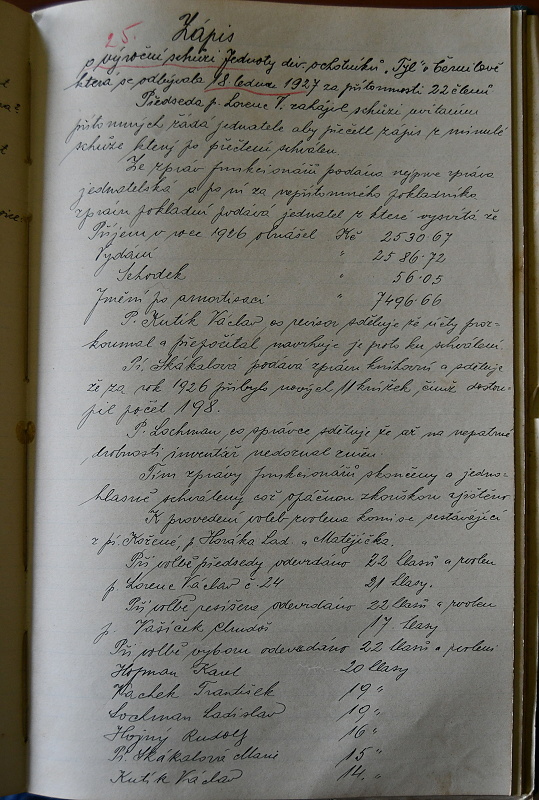 25. Zápis
o výroční schůzi Jednoty div. ochotníků „Tyl“ v Černilově
která se odbývala 18 ledna 1927 za přítomnosti 22 členů
Předseda p. Lorenc V. zahájil schůzi uvítáním
přítomných žádá jednatele aby přečetl zápis z minulé
schůze který po přečtení schválen.
Ze zpráv funkcionářů podána nejprve zpráva
jednatelská a po ní za nepřítomného pokladníka
zprávu pokladní podává jednatel z které vysvítá že
Příjem v roce 1926 obnášel Kč 2530·67
Vydání " 2586·72
Schodek " 56·05
Jmění po amortisaci " 7496·66
P. Kutík Václav co revisor sděluje že účty proz-
koumal a přepočítal navrhuje je proto ku schválení.
Pí. Skákalová podává zprávu knihovní a sděluje
že za rok 1926 přibylo nových 11 knížek, čímž dostou-
pil počet 198.
P. Lochman co správce sděluje že až na nepatrné
drobnosti inventář nedoznal změn.
Tím zprávy funkcionářů skončeny a jedno-
hlasně schváleny což opáčnou zkouškou zjištěno
K provedení voleb zvolena komise sestávající
z pí. Kořené, p. Horáka Lad. a Matějíčka.
Při volbě předsedy odevzdáno 22 hlasů a zvolen
p. Lorenc Václav č 24 21 hlasy.
Při volbě režiséra odevzdáno 22 hlasů a zvolen
p. Vašíček 17 hlasy
Při volbě výboru odevzdáno 22 hlasů a zvoleni
Hofman Karel 20 hlasy
Vachek František 19 "
Lochman Ladislav 19 "
Hojný Rudolf 16 "
Pí. Skákalová Marie 15 "
Kutík Václav 14. "